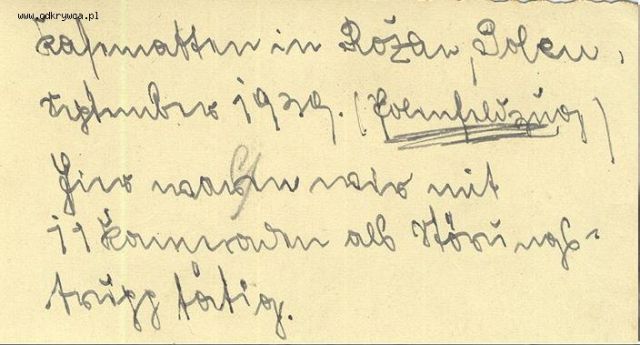 www.odkrywca.pl
Kasematten in Różan, Polen,
September 1939. (Polenfeldzug)
Hier waren wir mit
11 Kameraden als Störungs-
trupp tätig.